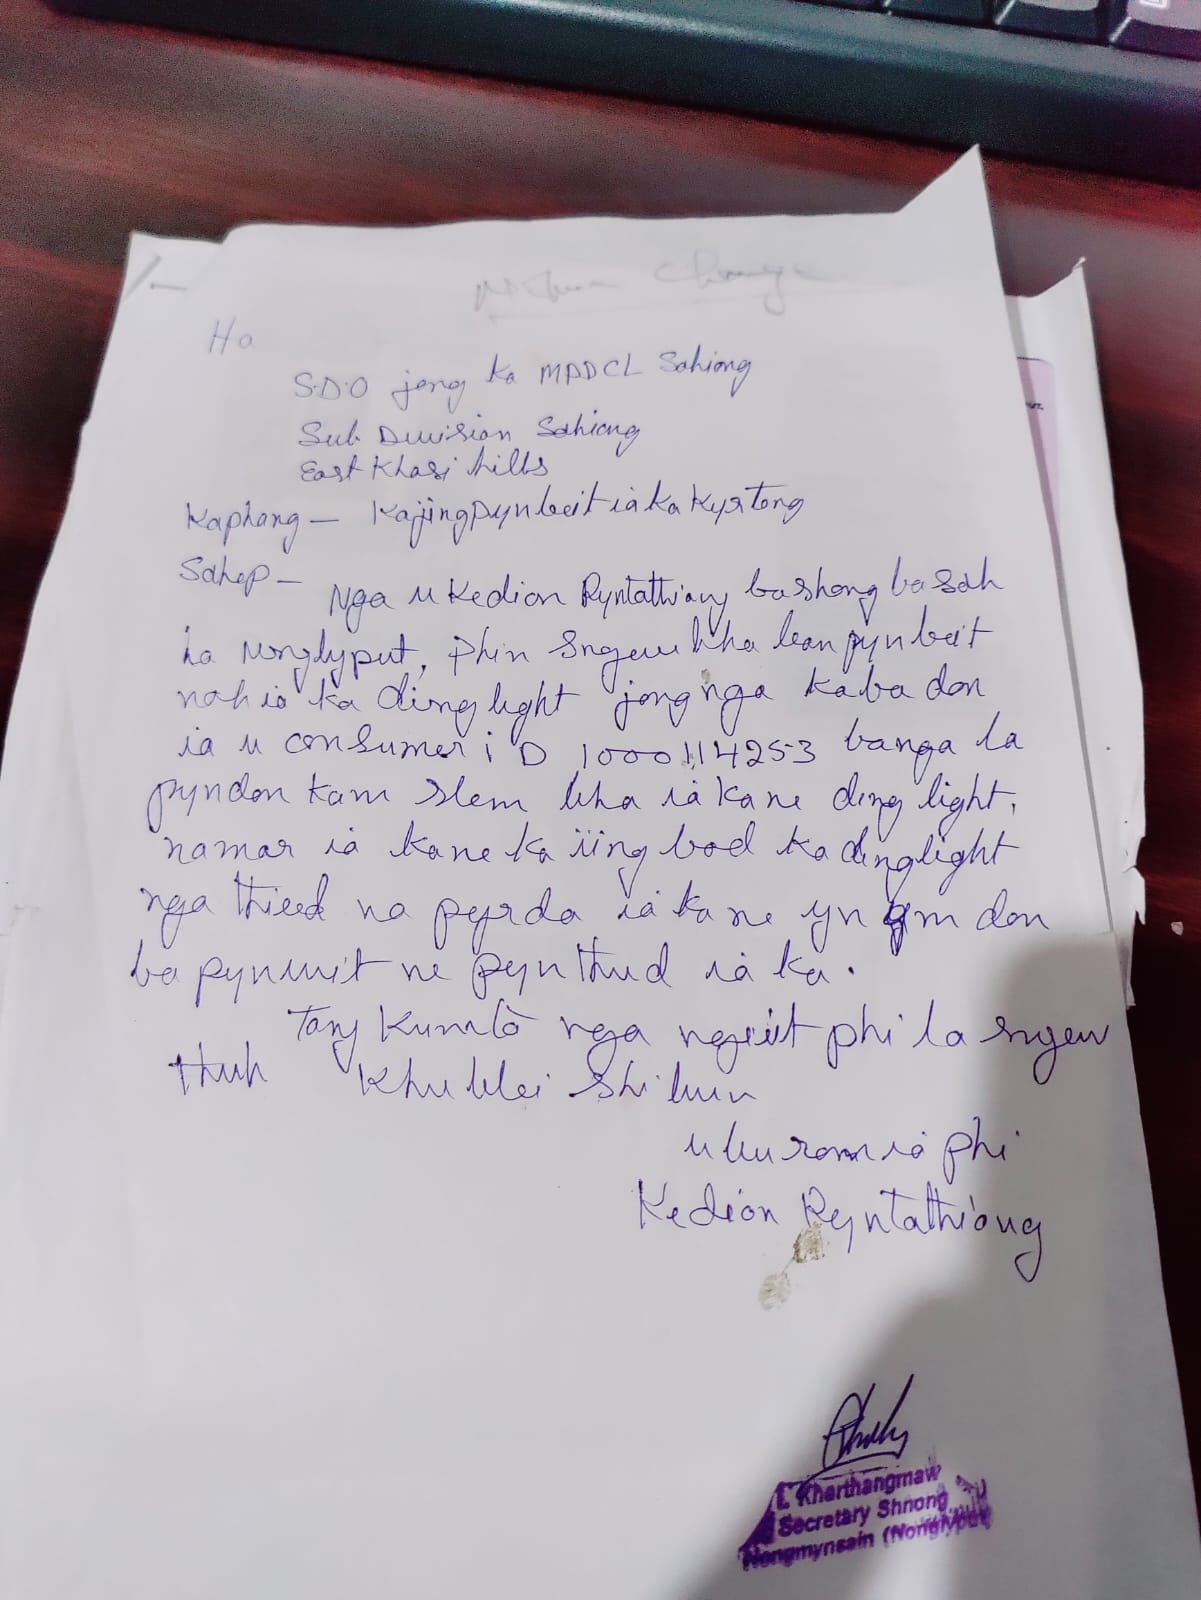 Change
Ha
S.D.O jong ka MPDCL Sohiong
Sub Division Sohiong
East Khasi hills
Kaphang - Kajingpynbeit ia ka Kyrtong
Sahep -
Nga u Kedion Ryntathiang bashong basah
ha Nonglyput, phin sngewbha ban pynbeit
noh ia ka dinglight jong nga kaba don
ia u consumer iD 1000114253 banga la
pyndon kam slem bha ia kane dinglight,
namar ia kane ka iing bad ka dinglight
nga thied na pyrda ia kane yn ym don
ba pynwit ne pynthud ia ka.
Tang Kumtò nga ngeit phi la sngew
thuh Khublei shibun
u ba rom ia phi
Kedion Ryntathiang
L Kharthangmaw
Secretary Shnong
Nongmynsain (Nonglyput)